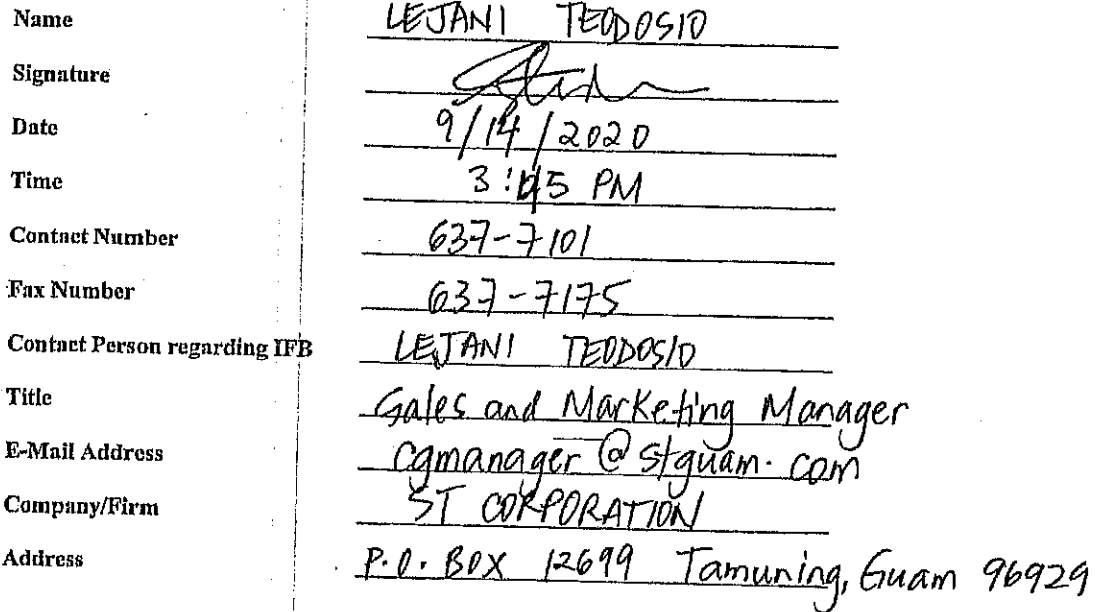 Name LEJANI TEODOSIO
Signature
Date 9/14/2020
Time 3:45 PM
Contact Number 637-7101
Fax Number 637-7175
Contact Person regarding IFB LEJANI TEODOSIO
Title Sales and Marketing Manager
E-Mail Address cgmanager@stguam.com
Company/Firm ST CORPORATION
Address P.O. BOX 12699 Tamuning, Guam 96929